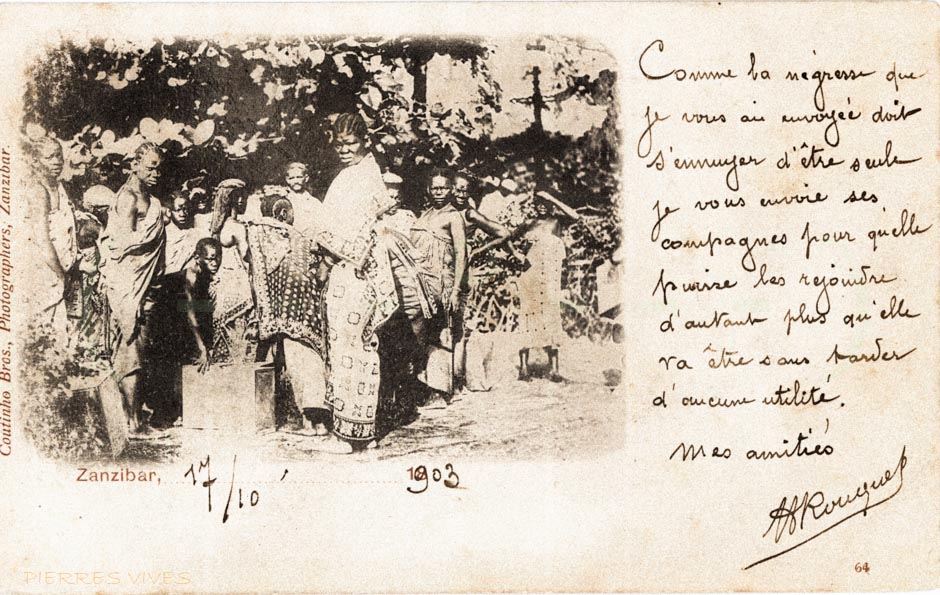 Coutinho Bros., Photographers, Zanzibar.
Comme la négresse que
je vous ai envoyée doit
s'ennuyer d'être seule
je vous envoie ses
compagnes pour qu'elle
puisse les rejoindre
d'autant plus qu'elle
va être sans tarder
d'aucune utilité.
Mes amitiés
Zanzibar, 17/10 1903
64
PIERRES VIVES